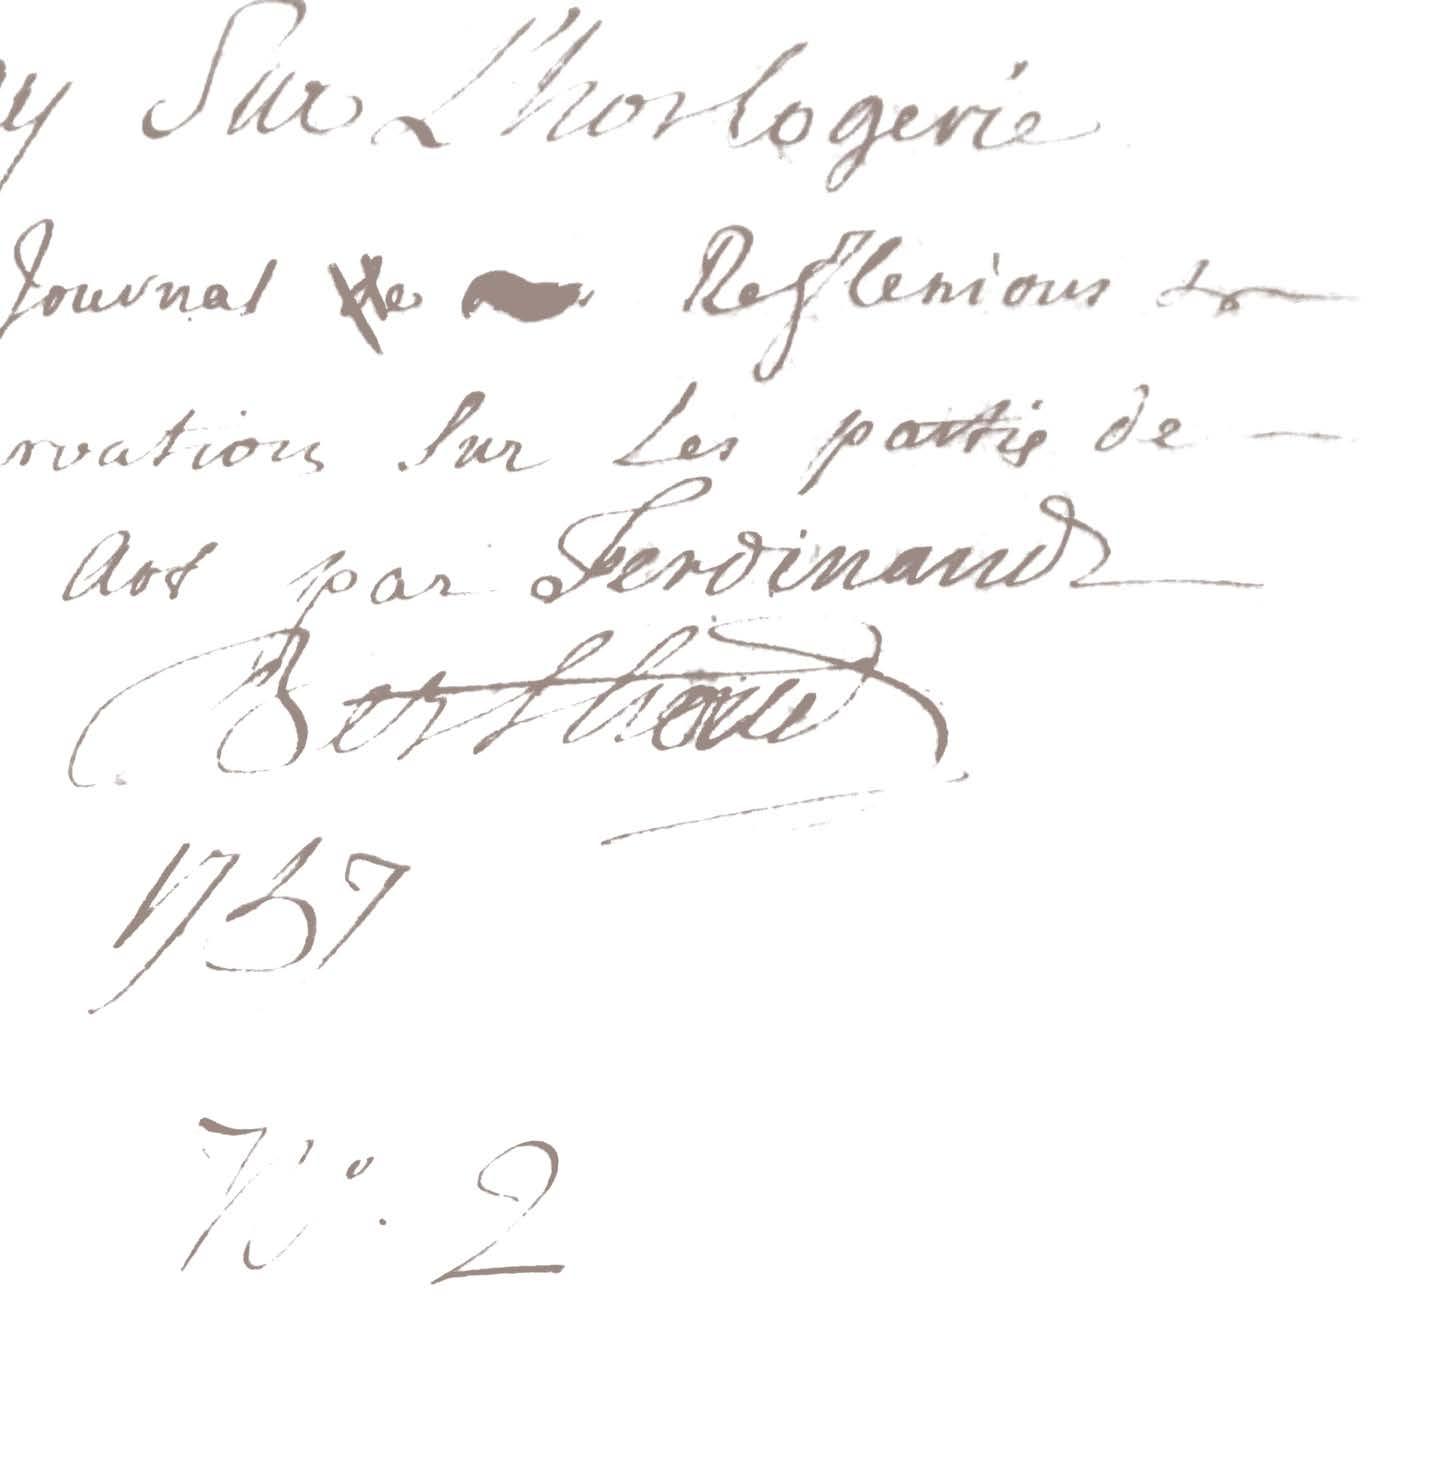 ay Sur L'horlogerie
Journal de Reflexions &
rvations Sur Les partis de
Art par Ferdinand
Berthoud
1757
N°. 2